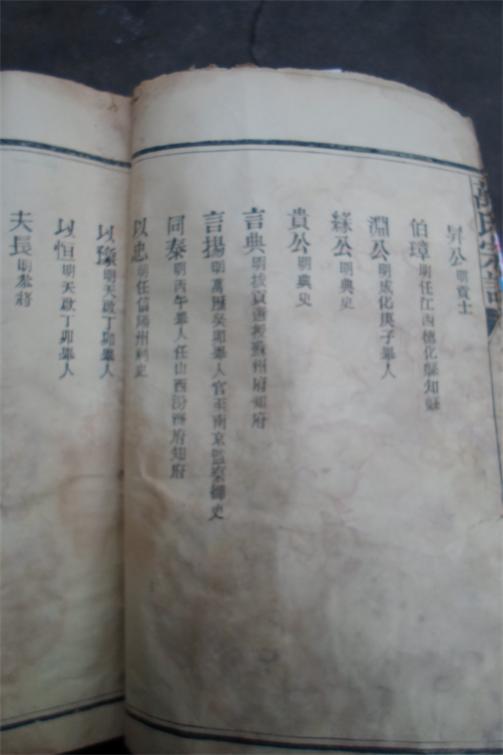 昇公明貢士
伯璋明任江西德化縣知縣
淵公明成化庚子舉人
緣公明典史
貴公明典史
言典明拔貢 蘇州府知府
言揚明萬曆癸卯舉人官至南京監察御史
同秦明丙午舉人任山西汾 府知府
以忠明任信陽州利史
以豫明天啟丁卯舉人
以恒明天啟丁卯舉人
夫長明參將